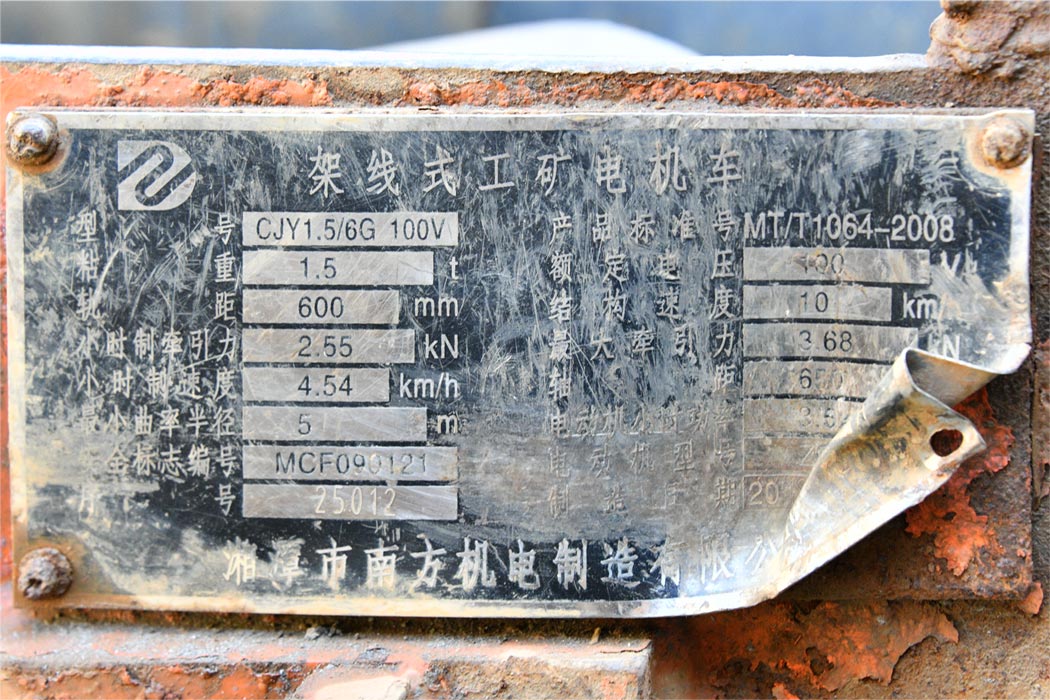 架线式工矿电机车
型号 CJY1.5/6G 100V 产品标准号 MT/T1064-2008
粘重 1.5 t 额定电压 100 V
轨距 600 mm 结构速度 10 km/
小时制牵引力 2.55 kN 最大牵引力 3.68 kN
小时制速度 4.54 km/h 轴距 650
最小曲率半径 5 m 电动机小时功率 3.5
安全标志编号 MCF090121 电动机型号
号 25012 制造日期 20
湘潭市南方机电制造有限公